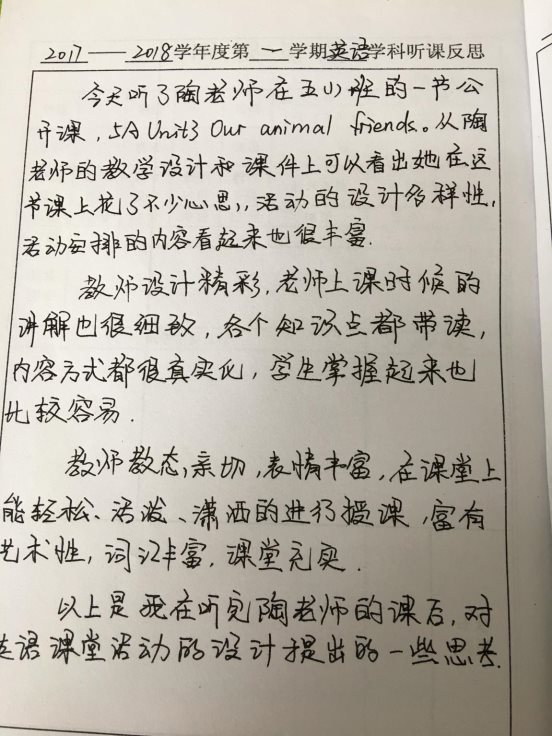 2017——2018学年度第一学期英语学科听课反思
今天听了陶老师在五(1)班的一节公
开课，5A Unit3 Our animal friends。从陶
老师的教学设计和课件上可以看出她在这
节课上花了不少心思，活动的设计多样性，
活动安排的内容看起来也很丰富.
教师设计精彩，老师上课时候的
讲解也很细致，各个知识点都带读，
内容方式都很真实化，学生掌握起来也
比较容易.
教师教态亲切，表情丰富，在课堂上
能轻松、活泼、潇洒的进行授课，富有
艺术性，词汇丰富，课堂充实.
以上是我在听完陶老师的课后，对
英语课堂活动的设计提出的一些思考.